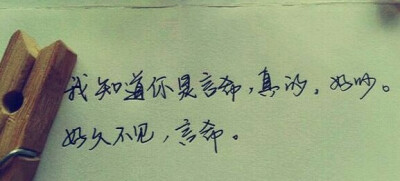 我知道你是言希,真的,好吵。
好久不见,言希。